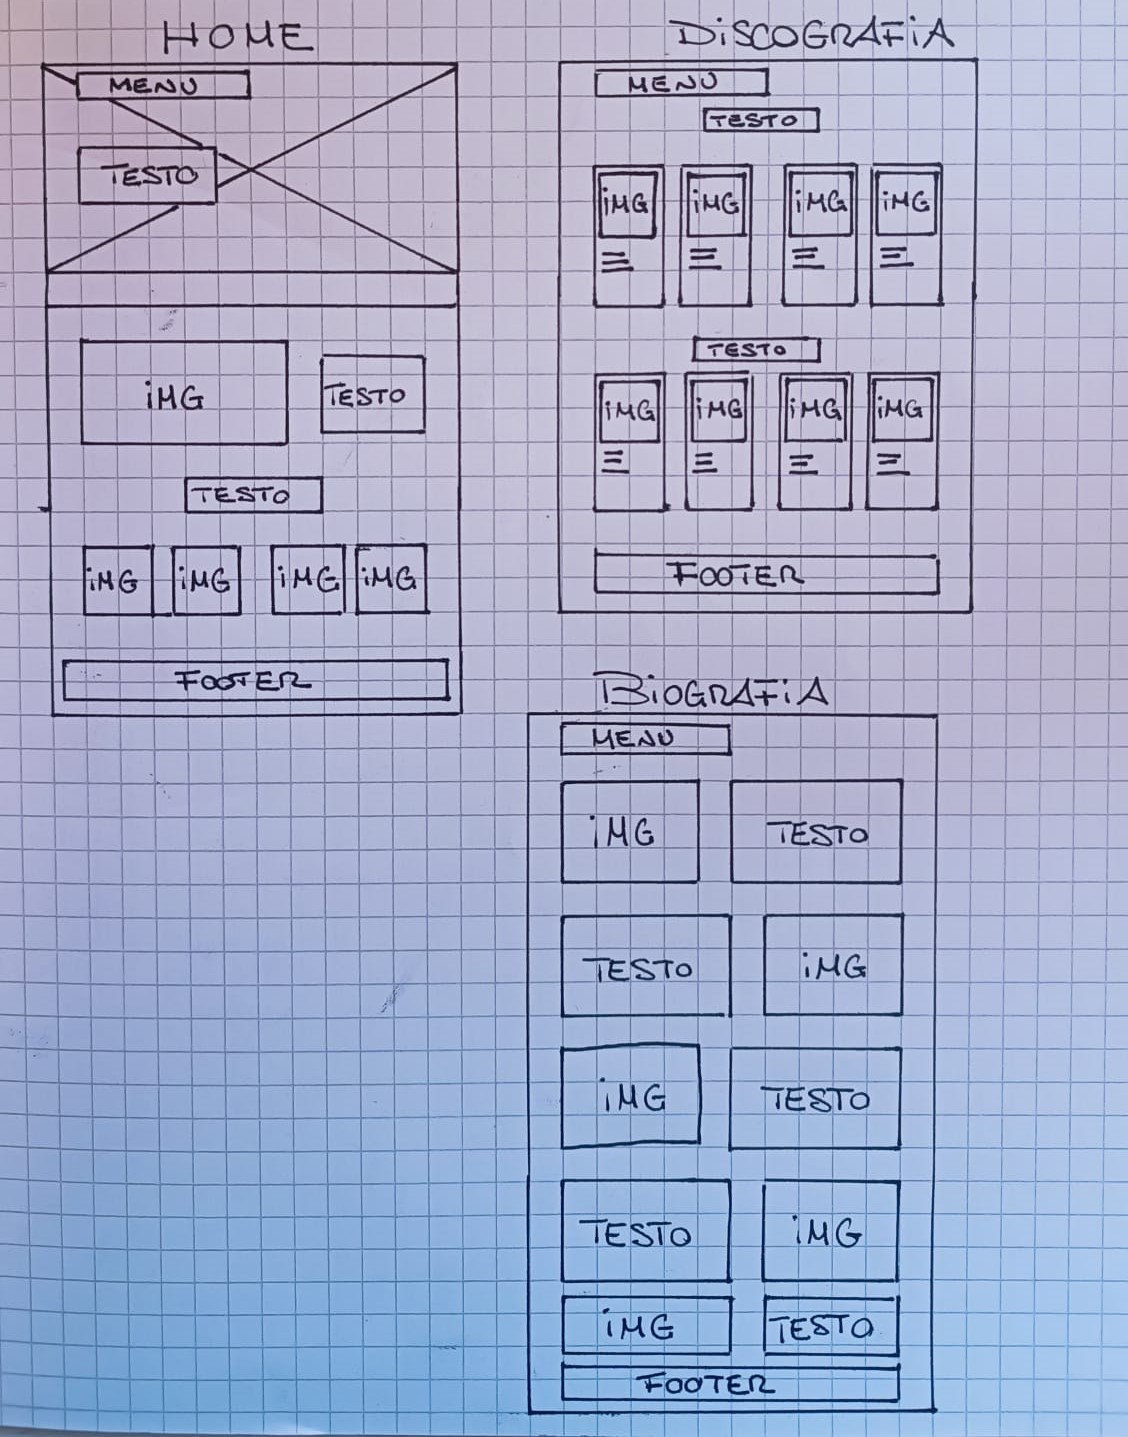 HOME
MENU
TESTO
iMG
TESTO
TESTO
iMG iMG iMG iMG
FOOTER
DiSCOGRAFiA
MENU
TESTO
iMG iMG iMG iMG
TESTO
iMG iMG iMG iMG
FOOTER
BiOGRAFiA
MENU
iMG TESTO
TESTO iMG
iMG TESTO
TESTO iMG
iMG TESTO
FOOTER